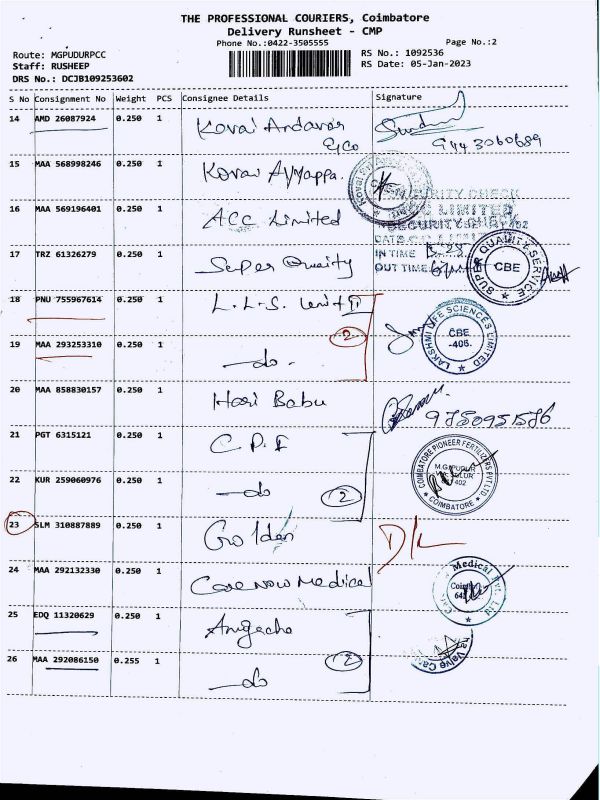 THE PROFESSIONAL COURIERS, Coimbatore
Delivery Runsheet - CMP
Phone No.:0422-3505555
Page No.:2
Route: MGPUDURPCC
Staff: RUSHEEP
DRS No.: DCJB109253602
RS No.: 1092536
RS Date: 05-Jan-2023
S No Consignment No Weight PCS Consignee Details Signature
14 AMD 26087924 0.250 1 Kovai Andavar & Co 9443060689
15 MAA 568998246 0.250 1 Kovai Ayyappa.
16 MAA 569196401 0.250 1 ACC Limited
SECURITY CHECK
LIMITED
SECURITY
DATE
IN TIME
OUT TIME
17 TRZ 61326279 0.250 1 Super Quality
SUPER QUALITY SERVICE
CBE
18 PNU 755967614 0.250 1 L.L.S. Unit II
2
LAKSHMI LIFE SCIENCES LIMITED
CBE
-406.
19 MAA 293253310 0.250 1 -do.
20 MAA 858830157 0.250 1 Hari Babu
21 PGT 6315121 0.250 1 C.P.F
COIMBATORE PIONEER FERTILIZERS PVT LTD
COIMBATORE
22 KUR 259060976 0.250 1 -do 2
23 SLM 310887889 0.250 1 Golden D/L
24 MAA 292132330 0.250 1 Carenow Medical
Medical Pvt. Ltd
25 EDQ 11320629 0.250 1
26 MAA 292086150 0.255 1 -do 2